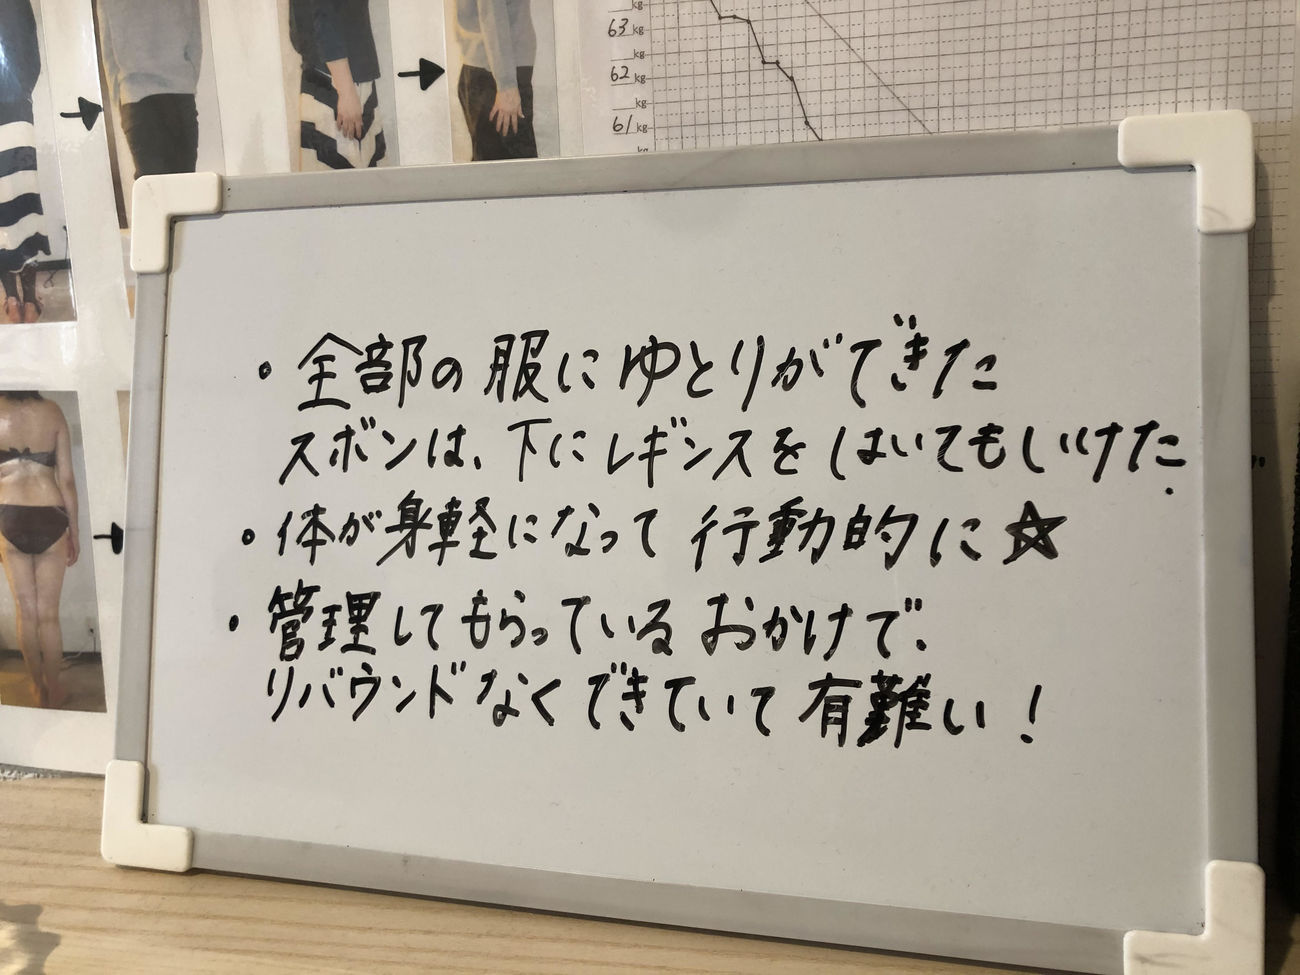 63 kg
62 kg
kg
61 kg
kg
・全部の服にゆとりができた
スボンは、下にレギンスをはいてもいけた
・体が身軽になって行動的に☆
・管理してもらっているおかげで、
リバウンドなくできていて有難い!